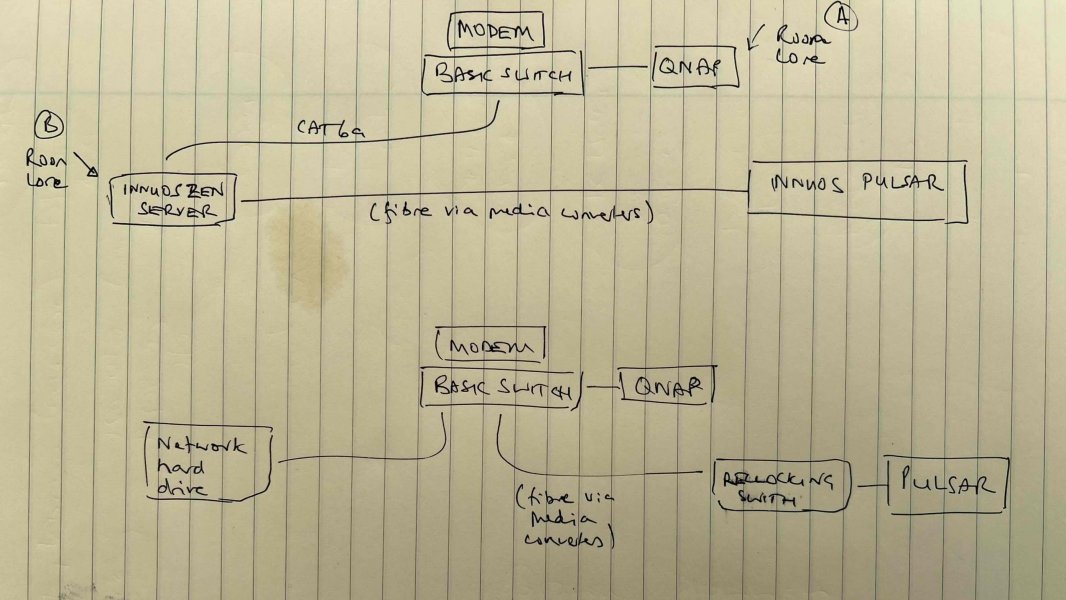 A
MODEM
BASIC SWITCH
QNAP
Room
Core
CAT6a
B
Room
Core
INNUOS ZEN
SERVER
(fibre via media converters)
INNUOS PULSAR
MODEM
BASIC SWITCH
QNAP
Network
hard
drive
(fibre via
media
converters)
RECLOCKING
SWITH
PULSAR